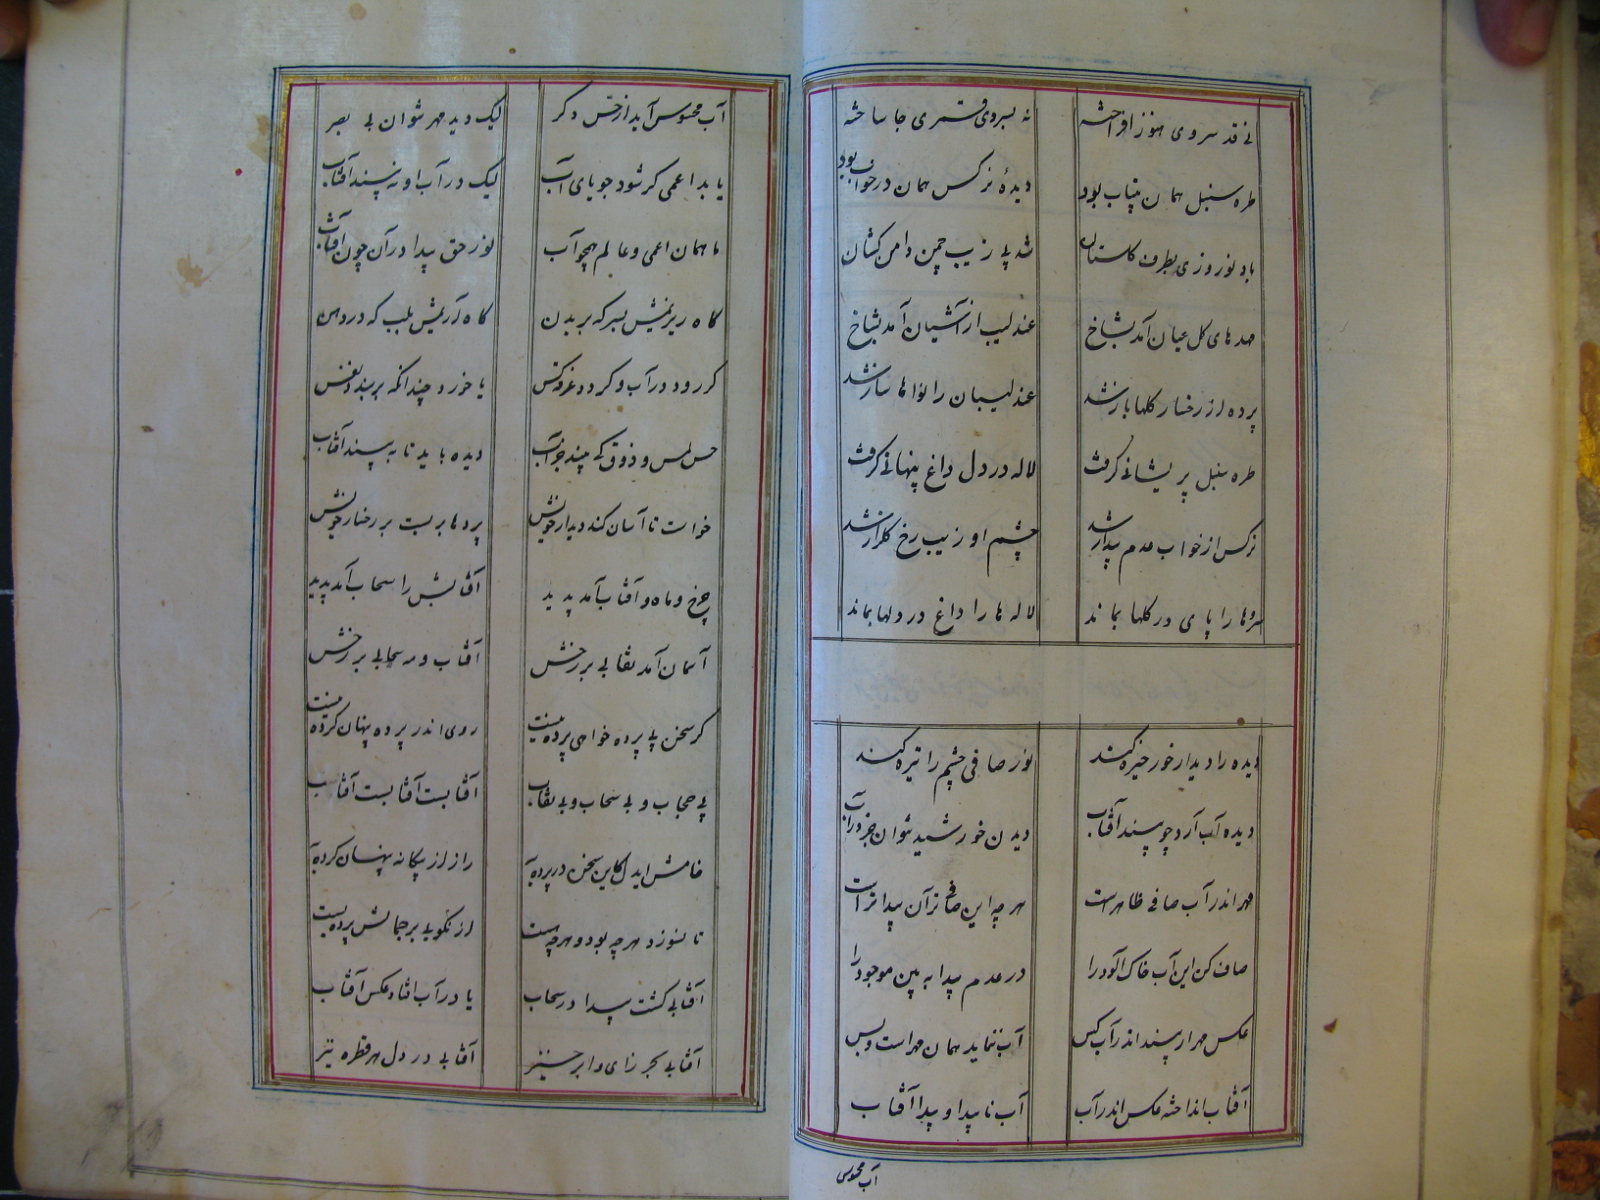 نی قد سروی هنوز افراخته
نه بسروی قمری جا ساخته
طره سنبل همان بیتاب بود
دیدهٔ نرکس همان در خواب بود
باد نوروزی بطرف کلستان
شد پی زیب چمن دامن کشان
صد های کل عیان آمد بشاخ
عندلیب از آشیان آمد بشاخ
پرده از رخسار کلها باز شد
عندلیبان را نواها ساز شد
طره سنبل پریشانی کرفت
لاله در دل داغ پنهانی کرفت
نرکس از خواب عدم بیدار شد
چشم او زیب رخ کلزار شد
سروها را پای در کلها بماند
لاله ها را داغ در دلها بماند
دیده را دیدار خور خیره کند
نور صافی چشم را تیره کند
دیده آب آرد چو بیند آفتاب
دیدن خورشید نتوان جز در آب
مهر اندر آب صافی ظاهر است
هرچه این صافی تر آن پیداتر است
صاف کن این آب خاک آلود را
در عدم پیدا به بین موجود را
عکس مهر ار بیند اندر آب کس
آب ننماید همان مهر است و بس
آفتاب انداخته عکس اندر آب
آب ناپیدا و پیدا آفتاب
آب محسوس
آب محسوس آید از حس دکر
لیک دید مهر نتوان بی بصر
یابد اعمی کر شود جویای آب
لیک در آب او نه بیند آفتاب
ما همان اعمی و عالم همچو آب
نور حق پیدا در آن چون آفتاب
کاه ریزیمش بسر که بر بدن
کاه آریمش بلب که در دهن
کر رود در آب و کردد غرق کس
یا خورد چندانکه بر بندد نفس
حس لمس و ذوق کی بیند جز آب
دیده باید تا به بیند آفتاب
خواست تا آسان کند دیدار خویش
پردها بر بست بر رخسار خویش
چرخ و ماه و آفتاب آمد پدید
آفتابش را سحاب آمد پدید
آسمان آمد نقابی بر رخش
آفتاب و مه سحابی بر رخش
کر سخن بی پرده خواهی پرده نیست
روی اندر پرده پنهان کرده نیست
بی حجاب و بی سحاب و بی نقاب
آفتابست آفتابست آفتاب
خامش ایدل کاین سخن در پرده به
راز از بیکانه پنهان کرده به
تا نسوزد هرچه بود و هرچه هست
از نکویی بر جمالش پرده بست
آفتابی کشت پیدا در سحاب
یا در آب افتاد عکس آفتاب
آفتابی بحر زای و ابر خیز
آفتابی در دل هر قطره نیز